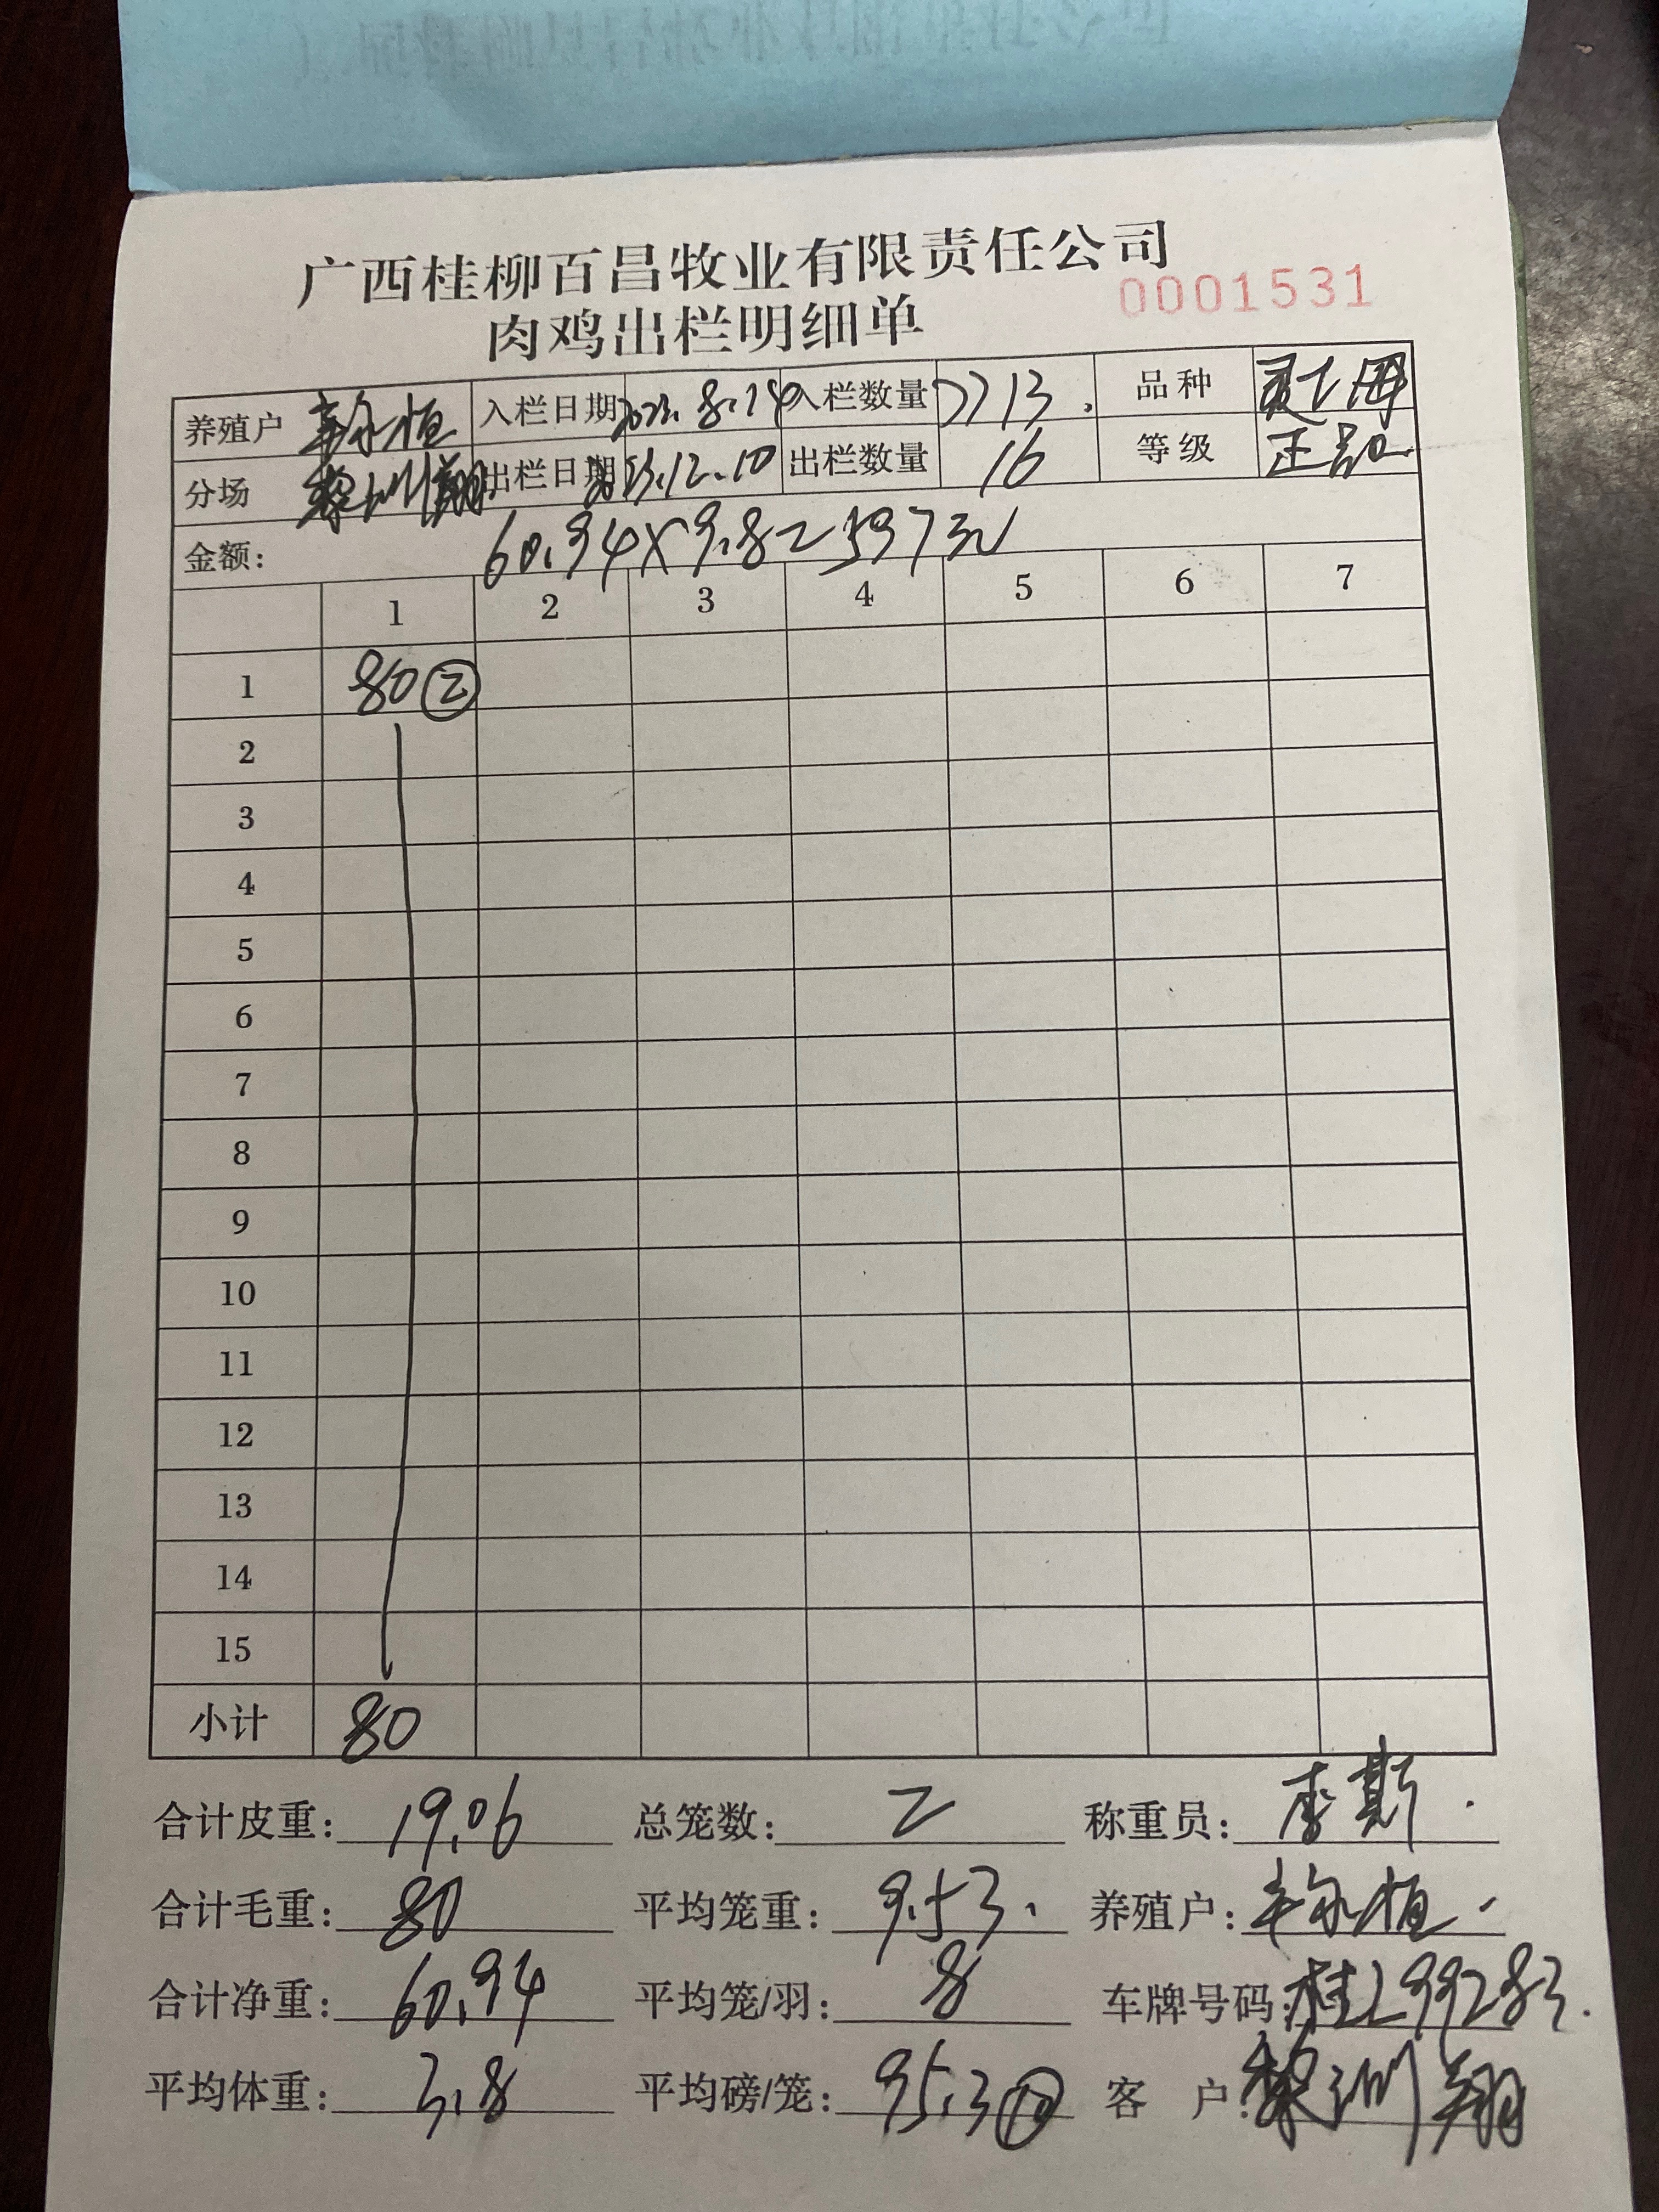 广西桂柳百昌牧业有限责任公司
0001531
肉鸡出栏明细单
养殖户 入栏日期 8.14 入栏数量 7713. 品种
分场 黎洲翔 出栏日期 12.10 出栏数量 16 等级 正品
金额: 60.94×9.8=597元
1 2 3 4 5 6 7
1 80②
2
3
4
5
6
7
8
9
10
11
12
13
14
15
小计 80
合计皮重: 19.06 总笼数: 2 称重员: 李斯.
合计毛重: 80 平均笼重: 9.53. 养殖户: 永恒.
合计净重: 60.94 平均笼/羽: 8 车牌号码: 桂L99283.
平均体重: 3.8 平均磅/笼: 95.3⑩ 客 户: 黎洲翔